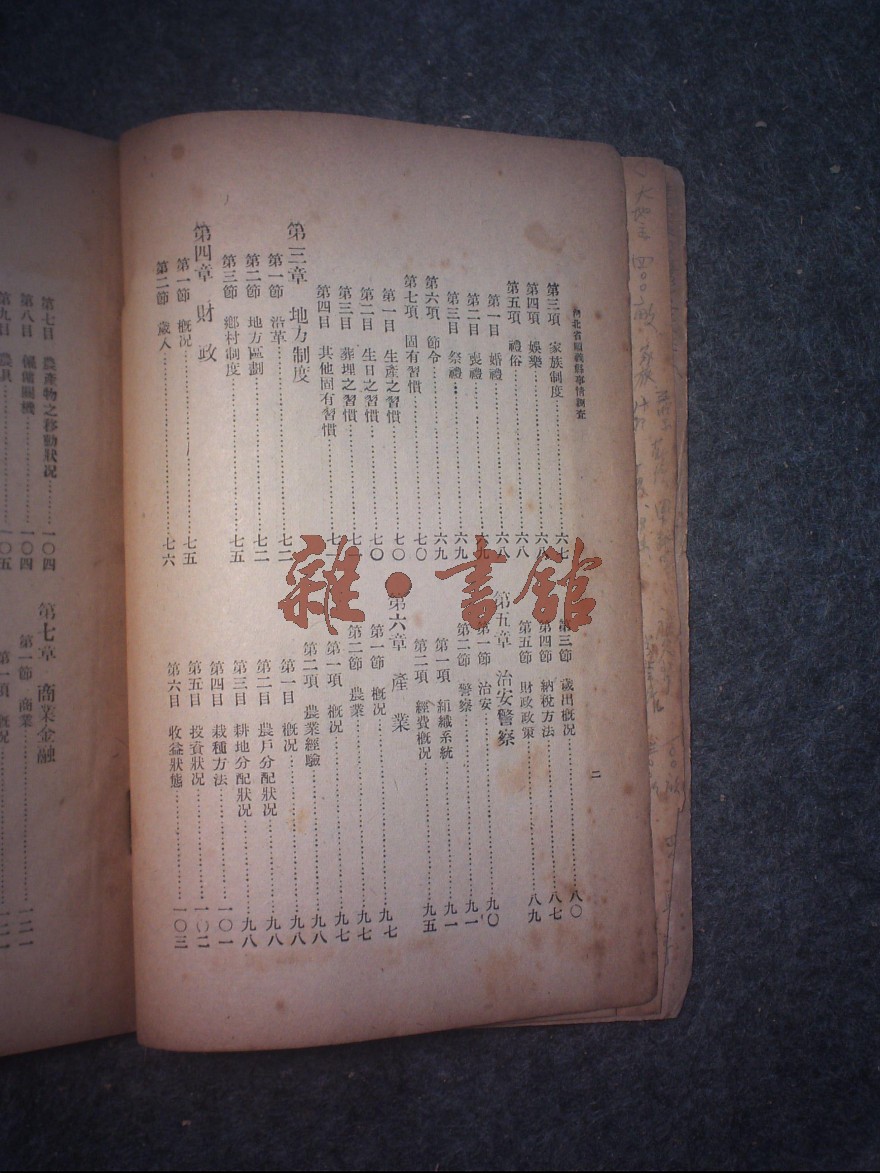 河北省順義縣事情調查
第三項 家族制度……六七
第四項 娛樂……六八
第五項 禮俗……六八
第一目 婚禮……六八
第二目 喪禮……六九
第三目 祭禮……六九
第六項 節令……六九
第七項 固有習慣……七〇
第一目 生產之習慣……七〇
第二目 生日之習慣……七〇
第三目 葬埋之習慣……七一
第四目 其他固有習慣……七一
第三章 地方制度
第一節 沿革……七二
第二節 地方區劃……七二
第三節 鄉村制度……七五
第四章 財政
第一節 概况……七五
第二節 歲入……七六
第三節 歲出概况……八〇
第四節 納稅方法……八七
第五節 財政政策……八九
第五章 治安警察
第一節 治安……九〇
第二節 警察……九一
第一項 組織系統……九一
第二項 經費概况……九五
第六章 產業
第一節 概况……九七
第二節 農業……九七
第一項 概况……九七
第二項 農業經驗……九八
第一目 概况……九八
第二目 農戶分配狀况……九八
第三目 耕地分配狀况……九八
第四目 栽種方法……一〇一
第五目 投資狀况……一〇二
第六目 收益狀態……一〇三
二
第七目 農產物之移動狀况……一〇四
第八目 備備關機……一〇四
第九目 農具……一〇五
第七章 商業金融
第一節 商業……一二一
第一項 概况……一二一
雜·書館